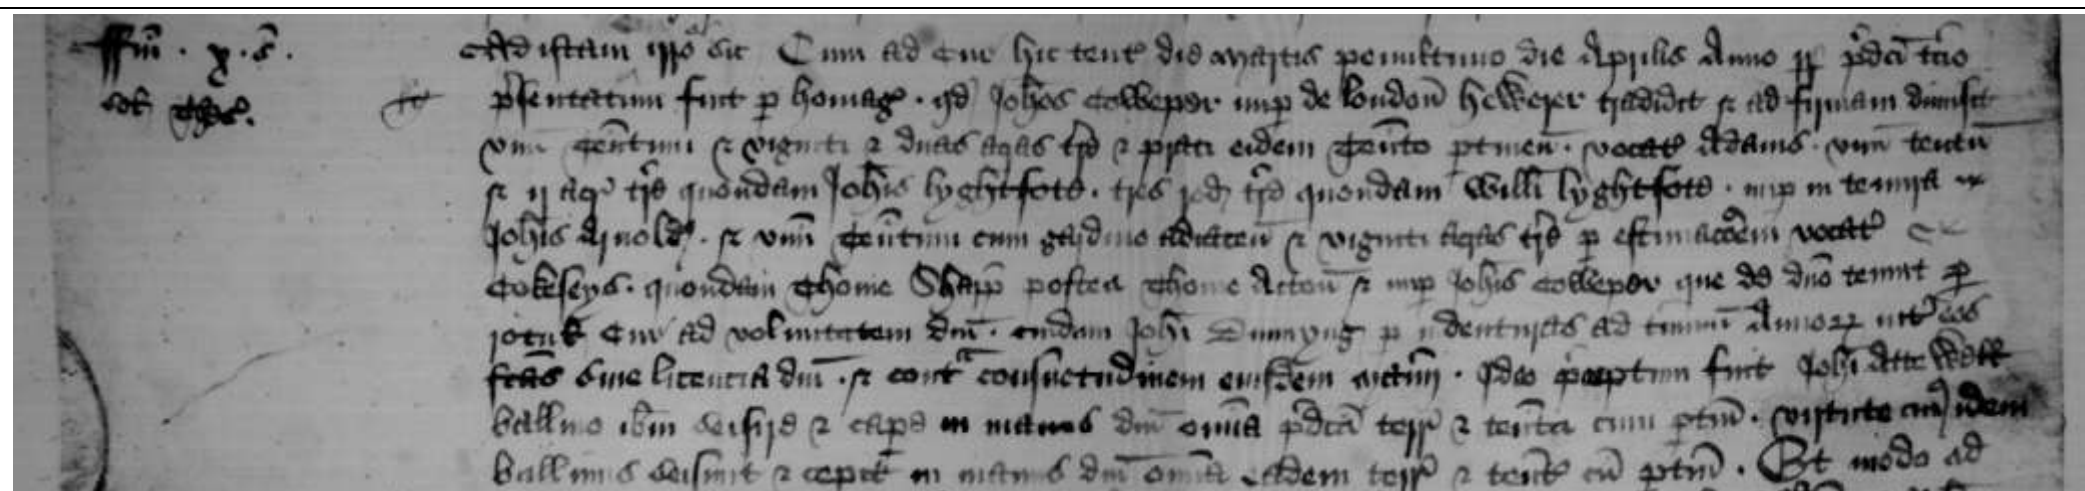 ffin . x . s .
Ad istam Cur sic Cum ad Cur hic tent die martis penultimo die Aprilis Anno rr pdco tcio
psentatum fuit p homag . qd Johes Colleper nup de london tradidit & ad firmam dimisit
vnu tentum & viginti & duas acras tre & prati eidem tento ptinen . vocat Adams . vnu tentu
& ij acr tre quondam Johis lyghtfote . tres rod tre quondam Willi lyghtfote . nup in tenura
Johis Arnold . & vnu tentum cum gardino adiacen & viginti acras tre p estimacoem vocat
Cokeseys . quondam Thome Sharp postea Thome Acton & nup Johis Colleper que de dno tenuit p
rotul Cur ad voluntatem dni . cuidam Johi p indenturas ad tminu Annor int eos
fcas sine licencia dni . & cont consuetudinem eiusdem . Ideo pceptum fuit Johi Atte Well
ballivo ibm seisire & cape in manus dni omia pdca terr & tenta cum ptin . virtute cuj idem
ballivus seisivit & cepit in manus dni omia eadem terr & tent cu ptin . Et modo ad